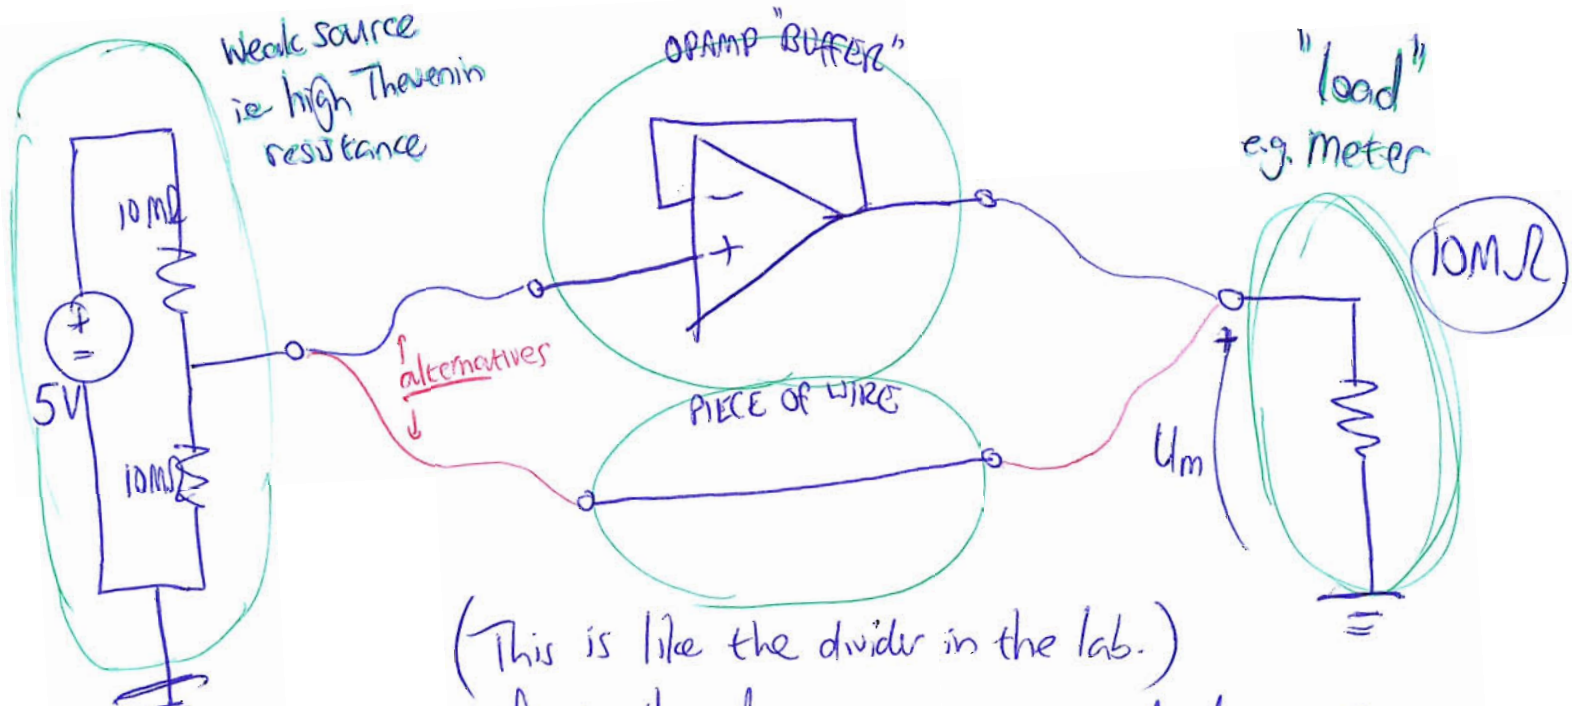 Weak source
ie high Thevenin
resistance
OPAMP "BUFFER"
"load"
e.g. meter
10MΩ
10MΩ
+
=
5V
10MΩ
-
+
alternatives
PIECE OF WIRE
+
Um
(This is like the divider in the lab.)